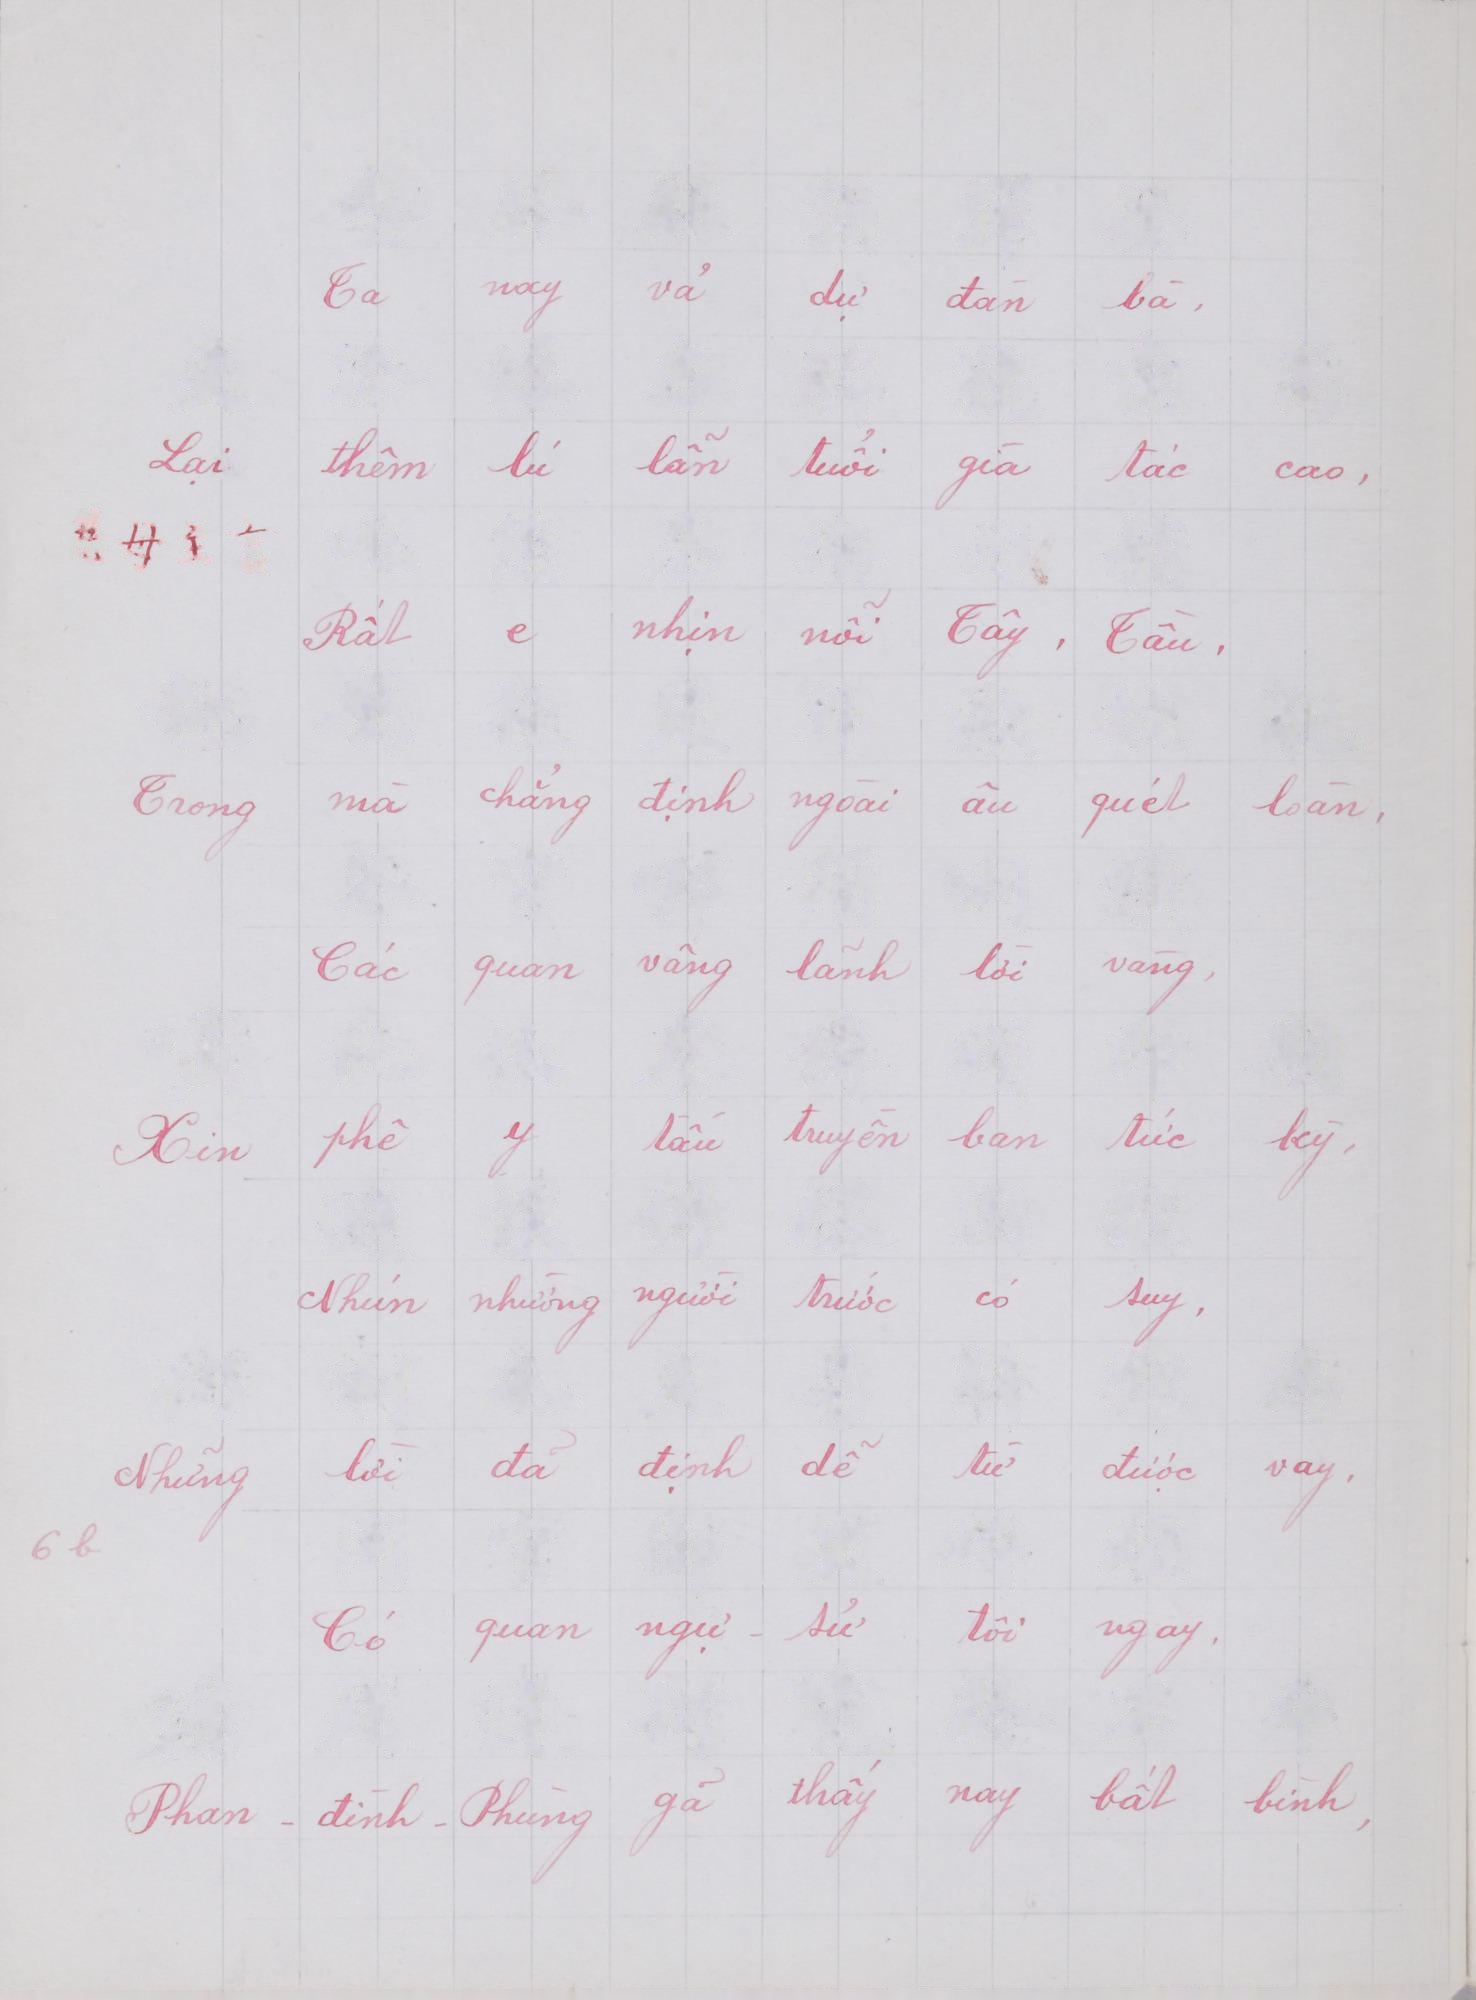 Ta nay vả dự đàn bà,
Lại thêm lú lẫn tuổi già tác cao,
Rất e nhịn nỗi Tây, Tàu,
Trong mà chẳng định ngoài âu quét loàn,
Các quan vâng lãnh lời vàng,
Xin phê y tấu truyền ban tức kỳ,
Nhún nhường người trước có suy,
Những lời đã định dễ từ được vay,
6 b
Có quan ngự - sử tôi ngay,
Phan - đình - Phùng gã thấy nay bất bình,